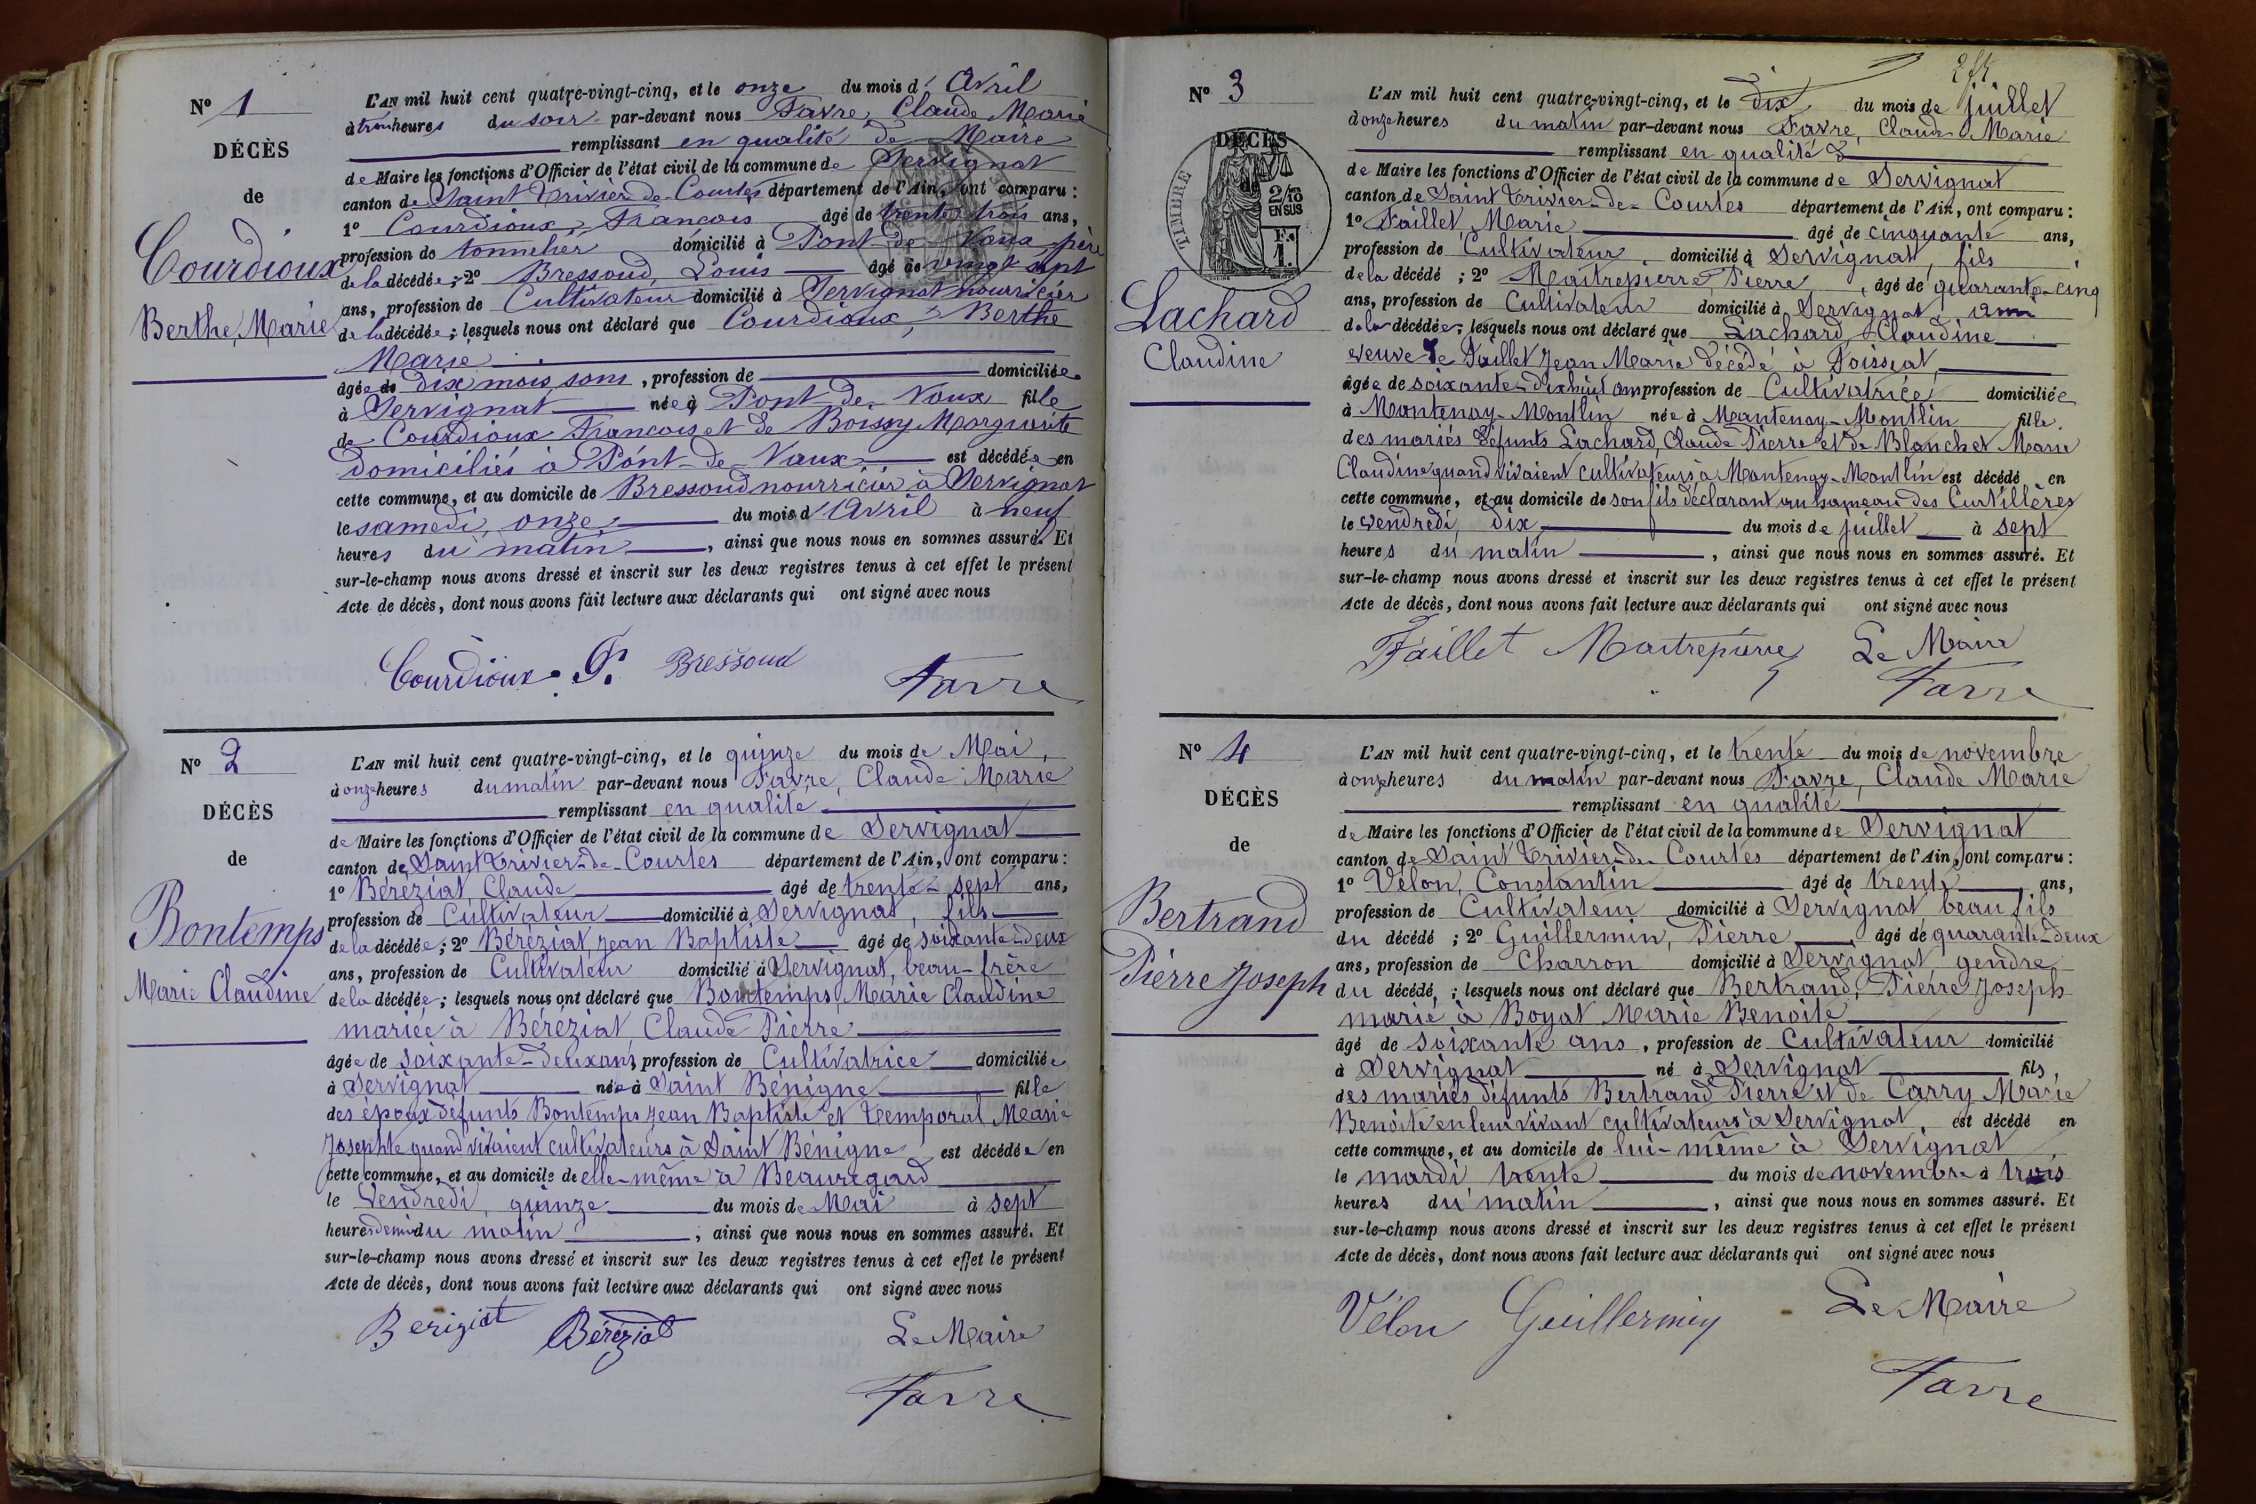 Nº 1
DÉCÈS
de
Courdioux
Berthe, Marie
L'AN mil huit cent quatre-vingt-cinq, et le onze du mois d' Avril
à trois heures du soir par-devant nous Favre, Claude Marie
remplissant en qualité de Maire
de Maire les fonctions d'Officier de l'état civil de la commune de Servignat
canton de Saint Trivier-de-Courtes département de l'Ain, ont comparu :
1º Courdioux, François âgé de trente trois ans,
profession de tonnelier domicilié à Pont-de-Vaux père
de la décédée ; 2º Bressoud, Louis âgé de vingt sept
ans, profession de Cultivateur domicilié à Servignat nourricier
de la décédée ; lesquels nous ont déclaré que Courdioux, Berthe
Marie
âgée de dix mois, profession de domiciliée
à Servignat née à Pont-de-Vaux fille
de Courdioux François et de Boissy Marguerite
domiciliés à Pont-de-Vaux est décédée en
cette commune, et au domicile de Bressoud nourricier à Servignat
le samedi, onze du mois d'Avril à neuf
heures du matin, ainsi que nous nous en sommes assuré. Et
sur-le-champ nous avons dressé et inscrit sur les deux registres tenus à cet effet le présent
Acte de décès, dont nous avons fait lecture aux déclarants qui ont signé avec nous
Courdioux. F. Bressoud
Favre
Nº 2
DÉCÈS
de
Bontemps
Marie Claudine
L'AN mil huit cent quatre-vingt-cinq, et le quinze du mois de Mai,
à onze heures du matin par-devant nous Favre, Claude Marie
remplissant en qualité
de Maire les fonctions d'Officier de l'état civil de la commune de Servignat
canton de Saint Trivier-de-Courtes département de l'Ain, ont comparu :
1º Béréziat, Claude âgé de trente-sept ans,
profession de Cultivateur domicilié à Servignat, fils
de la décédée ; 2º Béréziat, Jean Baptiste âgé de soixante-deux
ans, profession de Cultivateur domicilié à Servignat, beau-frère
de la décédée ; lesquels nous ont déclaré que Bontemps, Marie Claudine
mariée à Béréziat, Claude Pierre
âgée de soixante-deux ans, profession de Cultivatrice domiciliée
à Servignat née à Saint Bénigne fille
des époux défunts Bontemps Jean Baptiste et Temporal, Marie
Josephte quand vivaient cultivateurs à Saint Bénigne est décédée en
cette commune, et au domicile de elle-même à Beauregard
le Vendredi, quinze du mois de Mai à sept
heures demi du matin, ainsi que nous nous en sommes assuré. Et
sur-le-champ nous avons dressé et inscrit sur les deux registres tenus à cet effet le présent
Acte de décès, dont nous avons fait lecture aux déclarants qui ont signé avec nous
Bereziat Béréziat Le Maire
Favre
Nº 3
DÉCÈS
de
TIMBRE
2/10
EN SUS
Lachard
Claudine
L'AN mil huit cent quatre-vingt-cinq, et le dix du mois de juillet
à onze heures du matin par-devant nous Favre, Claude Marie
remplissant en qualité
de Maire les fonctions d'Officier de l'état civil de la commune de Servignat
canton de Saint Trivier-de-Courtes département de l'Ain, ont comparu :
1º Faillet, Marie âgé de cinquante ans,
profession de Cultivateur domicilié à Servignat, fils
de la décédé ; 2º Maitrepierre, Pierre, âgé de quarante-cinq
ans, profession de Cultivateur domicilié à Servignat, ami
de la décédée ; lesquels nous ont déclaré que Lachard, Claudine
veuve de Faillet Jean Marie décédé à Foissiat,
âgée de soixante-dix huit ans profession de Cultivatrice domiciliée
à Mantenay-Montlin née à Mantenay-Montlin fille
des mariés défunts Lachard, Claude Pierre et de Blanchet Marie
Claudine quand vivaient cultivateurs à Mantenay-Montlin est décédé en
cette commune, et au domicile de son fils déclarant au hameau des Curtillères
le vendredi, dix du mois de juillet à sept
heures du matin, ainsi que nous nous en sommes assuré. Et
sur-le-champ nous avons dressé et inscrit sur les deux registres tenus à cet effet le présent
Acte de décès, dont nous avons fait lecture aux déclarants qui ont signé avec nous
Faillet Maitrepierre Le Maire
Favre
Nº 4
DÉCÈS
de
Bertrand
Pierre Joseph
L'AN mil huit cent quatre-vingt-cinq, et le trente du mois de novembre
à onze heures du matin par-devant nous Favre, Claude Marie
remplissant en qualité
de Maire les fonctions d'Officier de l'état civil de la commune de Servignat
canton de Saint Trivier-de-Courtes département de l'Ain, ont comparu :
1º Vélon, Constantin âgé de trente ans,
profession de Cultivateur domicilié à Servignat, beau fils
du décédé ; 2º Guillermin, Pierre, âgé de quarante-deux
ans, profession de Charron domicilié à Servignat, gendre
du décédé, ; lesquels nous ont déclaré que Bertrand, Pierre Joseph
marié à Boyat Marie Benoite
âgé de soixante ans, profession de Cultivateur domicilié
à Servignat né à Servignat fils,
des mariés défunts Bertrand Pierre et de Carry Marie
Benoite en leur vivant cultivateurs à Servignat, est décédé en
cette commune, et au domicile de lui-même à Servignat
le mardi trente du mois de novembre à trois
heures du matin, ainsi que nous nous en sommes assuré. Et
sur-le-champ nous avons dressé et inscrit sur les deux registres tenus à cet effet le présent
Acte de décès, dont nous avons fait lecture aux déclarants qui ont signé avec nous
Vélon Guillermin Le Maire
Favre